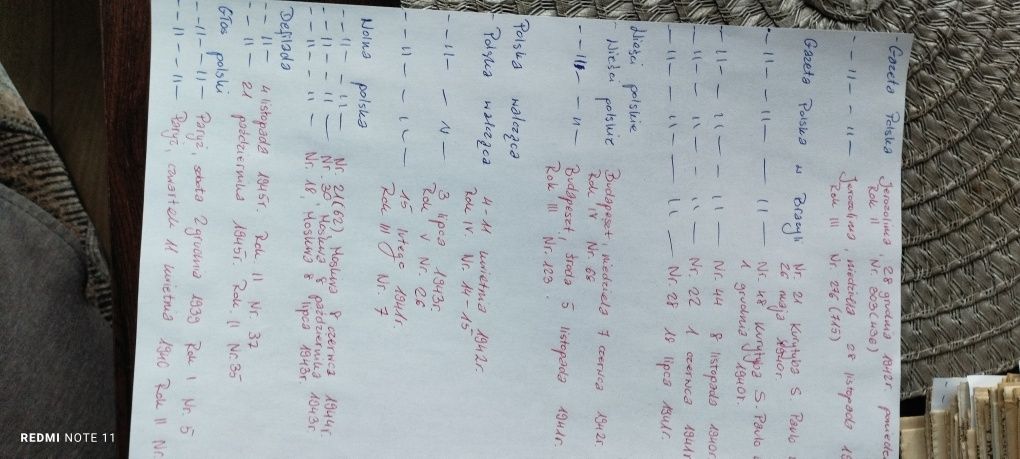 Gazeta Polska Jerozolima, 28 grudnia 1942r.
Rok II Nr. 303(436)
- 11 - - 11 - Jerozolima niedziela 28 listopada
Rok III Nr. 236 (715)
Gazeta Polska w Brazylii Nr. 21 Kurytyba S. Paulo
26 maja 1940r.
- 11 - - 11 - - 11 - Nr. 48 Kurytyba S. Paulo
1 grudnia 1940r.
- 11 - - 11 - - 11 - Nr. 44 8 listopada 1940r.
- 11 - - 11 - - 11 - Nr. 22 1 czerwca 1941r
- 11 - - 11 - - 11 - Nr. 28 18 lipca 1941r.
Wieści polskie
Wieści polskie Budapeszt, niedziela 7 czerwca 1942r.
Rok IV Nr. 66
- - 11 - - 11 - Budapeszt, środa 5 listopada 1941r.
Rok III Nr. 123.
Polska walcząca
- Polska walcząca 4-11 kwietnia 1942r.
Rok IV. Nr. 14-15
- - 11 - - 11 - 3 lipca 1943r.
Rok V Nr. 26
- - 11 - - 11 - 15 lutego 1941r.
Rok III Nr. 7
Wolna polska
- - 11 - - 11 - Nr. 21(62) Moskwa 8 czerwca 1944r.
- - 11 - - 11 - Nr. 30, Moskwa 8 października 1943r.
- - 11 - - 11 - Nr. 18, Moskwa 8 lipca 1943r.
Defilada
- - 11 - 4 listopada 1945r. Rok II Nr. 37
- - 11 - 21 października 1945r. Rok II Nr. 35
Głos polski
- - 11 - - 11 - Paryż, sobota 2 grudnia 1939 Rok I Nr. 5
- - 11 - - 11 - Paryż, czwartek 11 kwietnia 1940 Rok II Nr.
REDMI NOTE 11